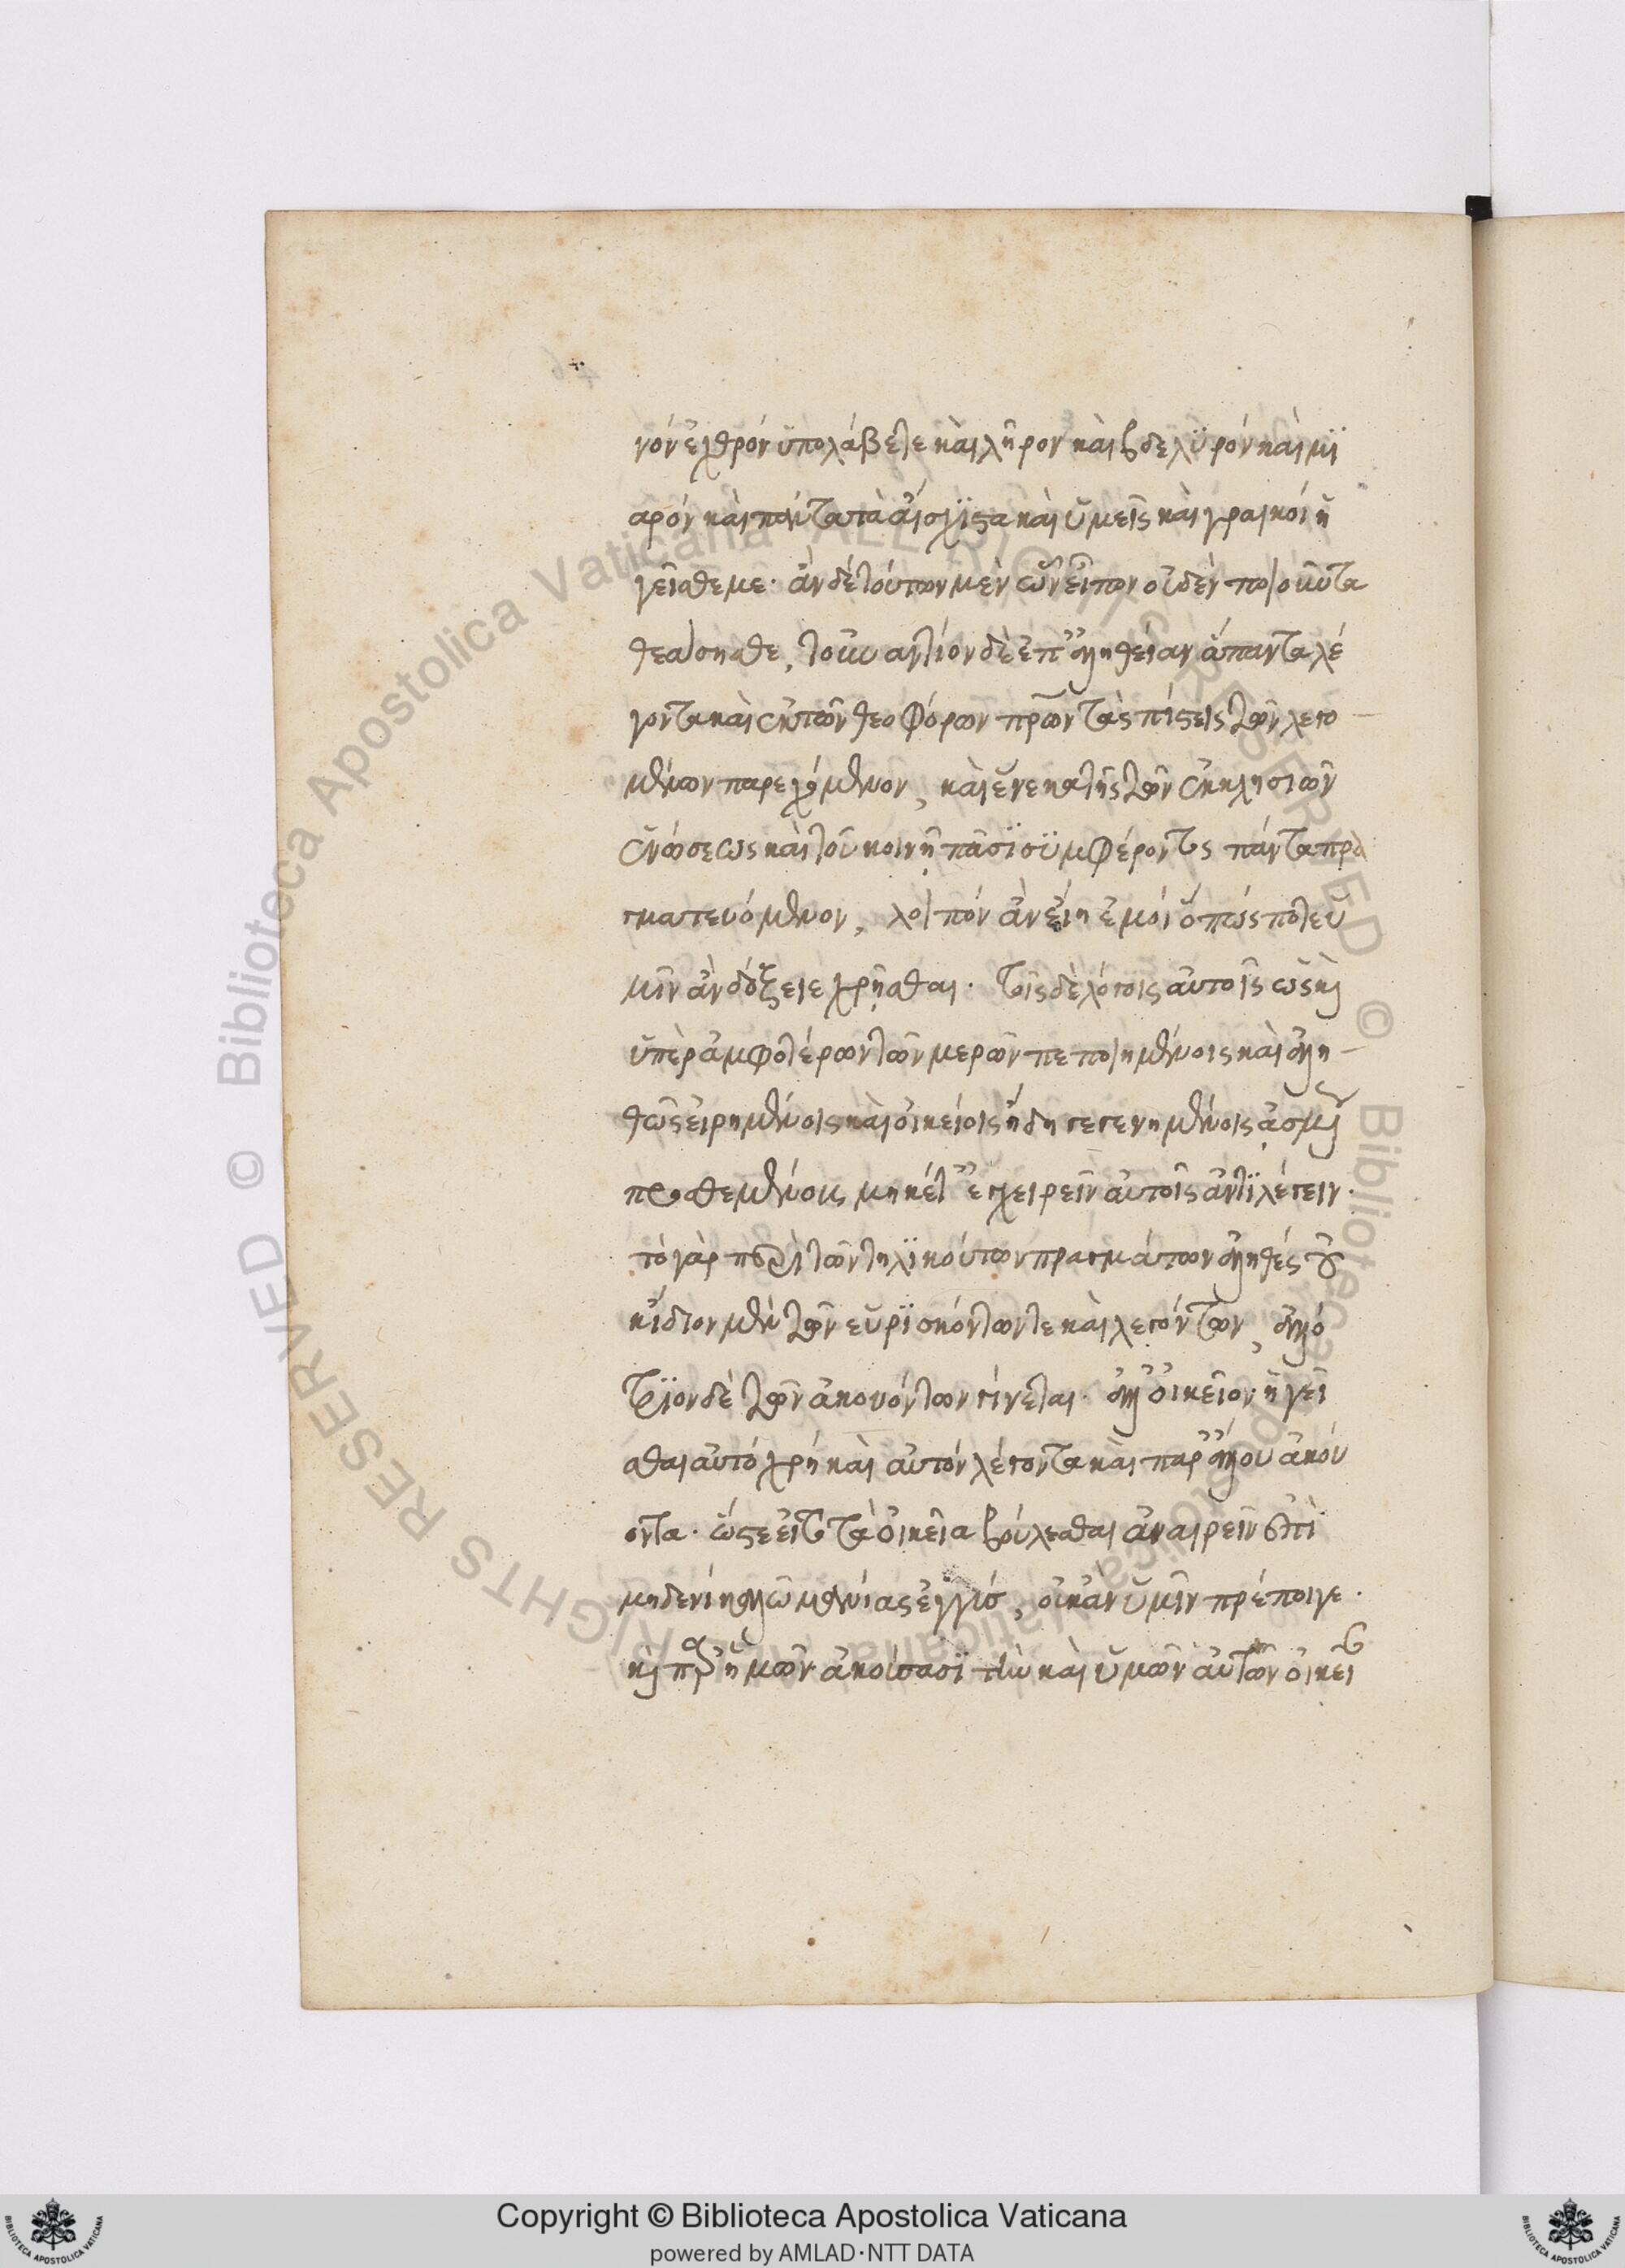 νόν ἐχθρόν ὑπολάβετε καὶ λῆρον καὶ βδελϋρόν καὶ μϊ
αρόν καὶ πάντα τὰ αἴσχιστα καὶ ὑμεῖς καὶ γραικοί ἡ
γεῖσθε με· ἀν δέ τούτων μὲν ὧν εἶπον οὐδὲν ποιοῦντα
θεάσησθε, τοὐναντίον δὲ ἐπ' ἀληθείαν ἅπαντα λέ
γοντα καὶ ἐκ τῶν θεοφόρων πρῶν τὰς πίστεις τῶν λεγο
μένων παρεχόμενον, καὶ ἕνεκα τῆς τῶν ἐκκλησιῶν
ἑνώσεως καὶ τοῦ κοινῇ πᾶσϊ σϋμφέροντος πάντα πρα
γματευόμενον, λοιπόν ἀν εἴη ἐμοί ὅπως ποτε ὑ
μῖν ἀν δόξειε χρῆσθαι· τοῖς δὲ λόγοις αὐτοῖς ὡς καὶ
ὑπὲρ ἀμφοτέρων τῶν μερῶν πεποιημένοις καὶ ἀλη
θῶς εἰρημένοις καὶ οἰκείοις ἤδη γεγενημένοις ἀσμένως
προσθεμένους μηκέτ' ἐγχειρεῖν αὐτοῖς ἀντϊλέγειν·
τὸ γὰρ περὶ τῶν τηλϊκούτων πραγμάτων ἀληθές οὐ
κ ἴδιον μὲν τῶν εὑρϊσκόντων τε καὶ λεγόντων, ἀλλό
τρϊον δὲ τῶν ἀκουόντων γίνεται· ἀλλ' οἰκεῖον ἡγεῖ
σθαι αὐτό χρή καὶ αὐτόν λέγοντα καὶ παρ' ἄλλου ἀκού
οντα· ὥστε εἰ τὸ τὰ οἰκεῖα βούλεσθαι ἀναιρεῖν ἐπὶ
μηδενί μανίας ἐγγύς, οὐκ ἀν ὑμῖν πρέποι γε·
καὶ παρ' ἡμῶν ἀκούσασϊ τὴν καὶ ὑμῶν αὐτῶν οἰκεί